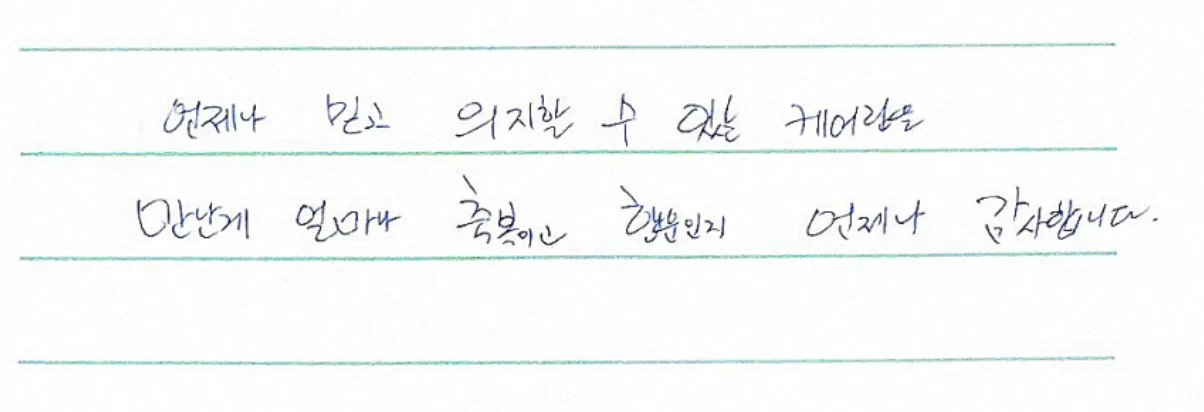 언제나 믿고 의지할 수 있는 케어란을
만난게 얼마나 축복이고 행운인지 언제나 감사합니다.